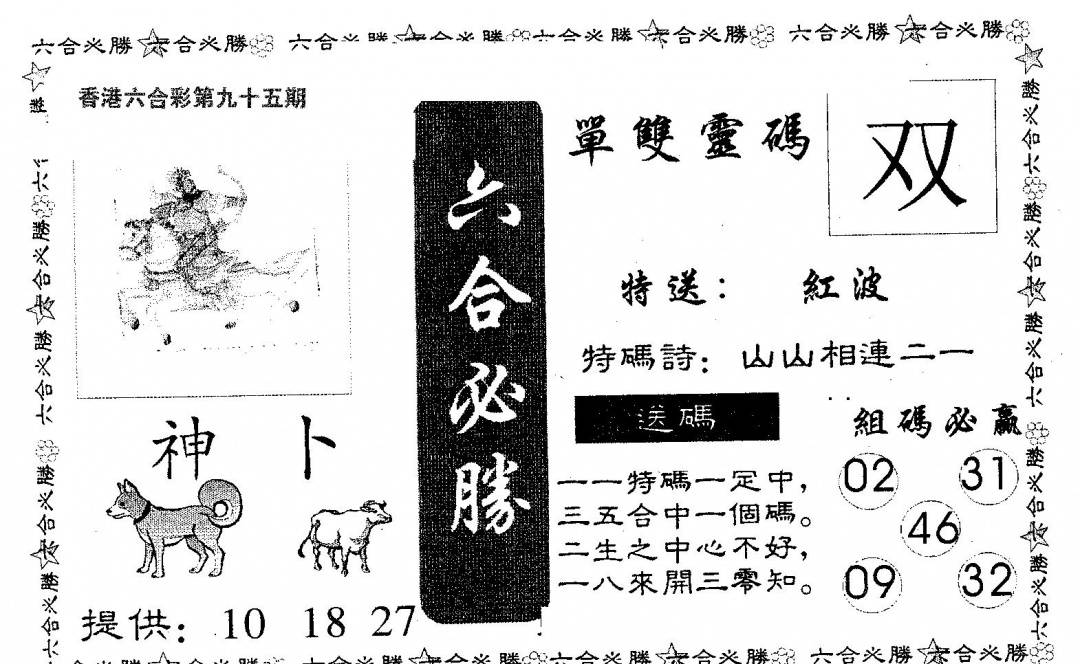 六合必勝 六合必勝 六合必勝 六合必勝 六合必勝 六合必勝 六合必勝 六合必勝
香港六合彩第九十五期
神 卜
提供：10 18 27
六合必勝
單雙靈碼
双
特送： 紅波
特碼詩：山山相連二一
送碼
一一特碼一定中，
三五合中一個碼。
二生之中心不好，
一八來開三零知。
組碼必贏
02 31
46
09 32
六合必勝 六合必勝 六合必勝 六合必勝 六合必勝 六合必勝 六合必勝 六合必勝